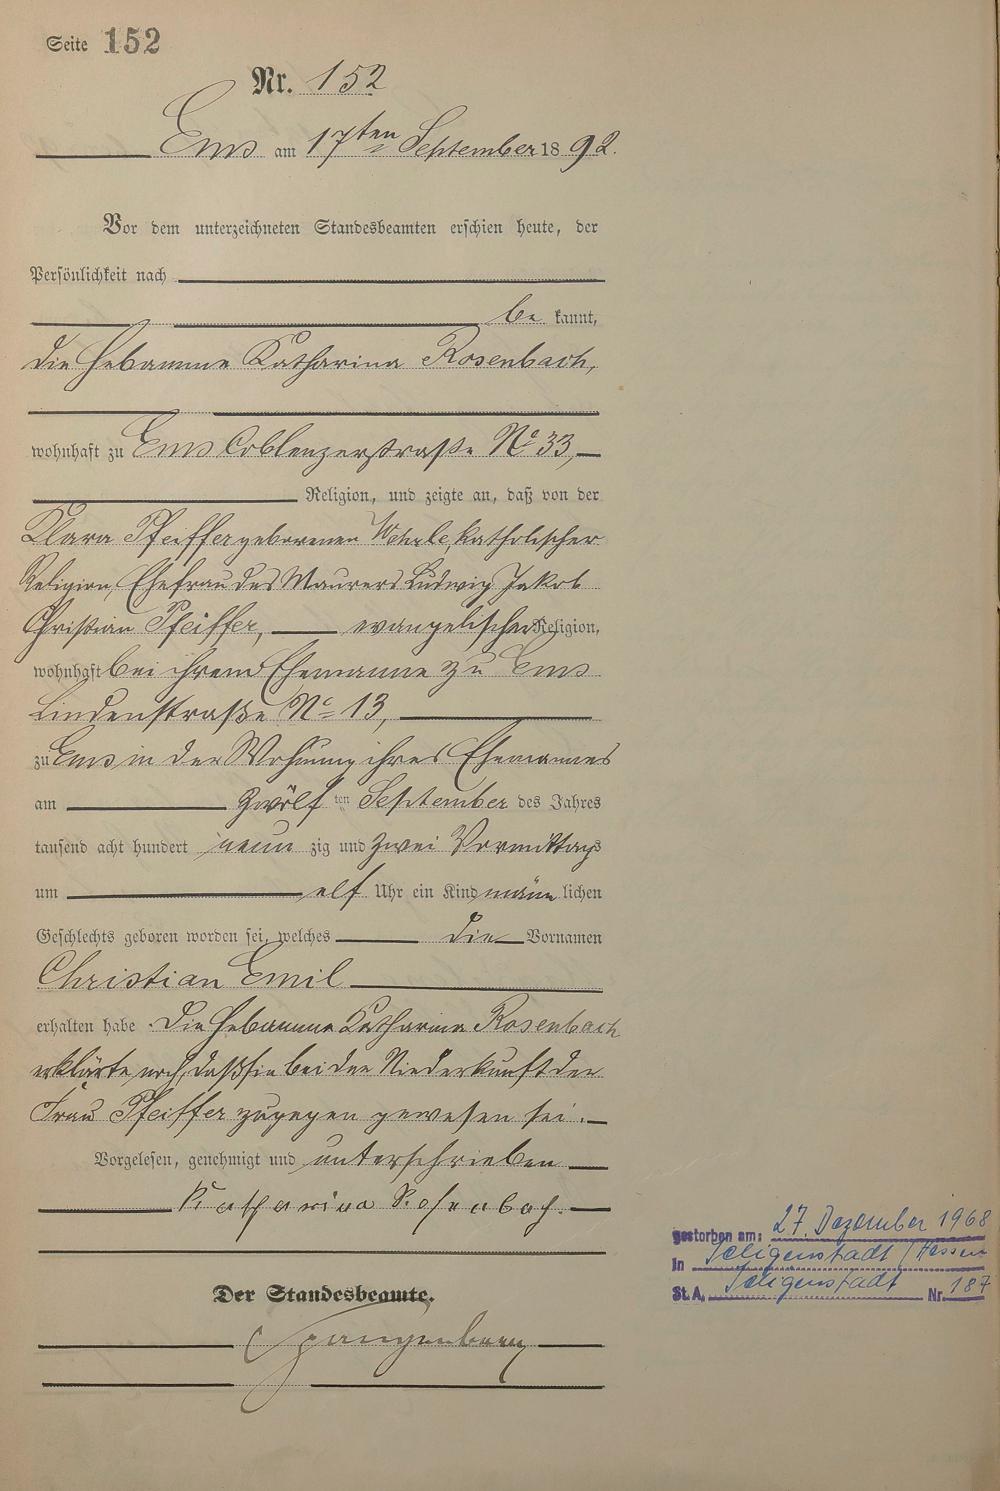 Seite 152
Nr. 152
Ems am 17ten September 1892.
Vor dem unterzeichneten Standesbeamten erschien heute, der
Persönlichkeit nach
be kannt,
die Hebamme Katharina Rosenbach,
wohnhaft zu Ems Coblenzerstraße No 33,
Religion, und zeigte an, daß von der
Klara Pfeiffer geborenen Wehrle, katholischer
Religion, Ehefrau des Maurers Ludwig Jakob
Christian Pfeiffer, evangelischer Religion,
wohnhaft bei ihrem Ehemanne zu Ems
Lindenstraße No 13,
zu Ems in der Wohnung ihres Ehemannes
am zwölf ten September des Jahres
tausend acht hundert neun zig und zwei Vormittags
um elf Uhr ein Kind männ lichen
Geschlechts geboren worden sei, welches die Vornamen
Christian Emil
erhalten habe. Die Hebamme Katharina Rosenbach
erklärte noch, daß sie bei der Niederkunft der
Frau Pfeiffer zugegen gewesen sei.
Vorgelesen, genehmigt und unterschrieben
Katharina Rosenbach.
Der Standesbeamte.
Spangenberg
gestorben am: 27. Dezember 1968
In Seligenstadt / Hessen
St. A. Seligenstadt Nr. 187